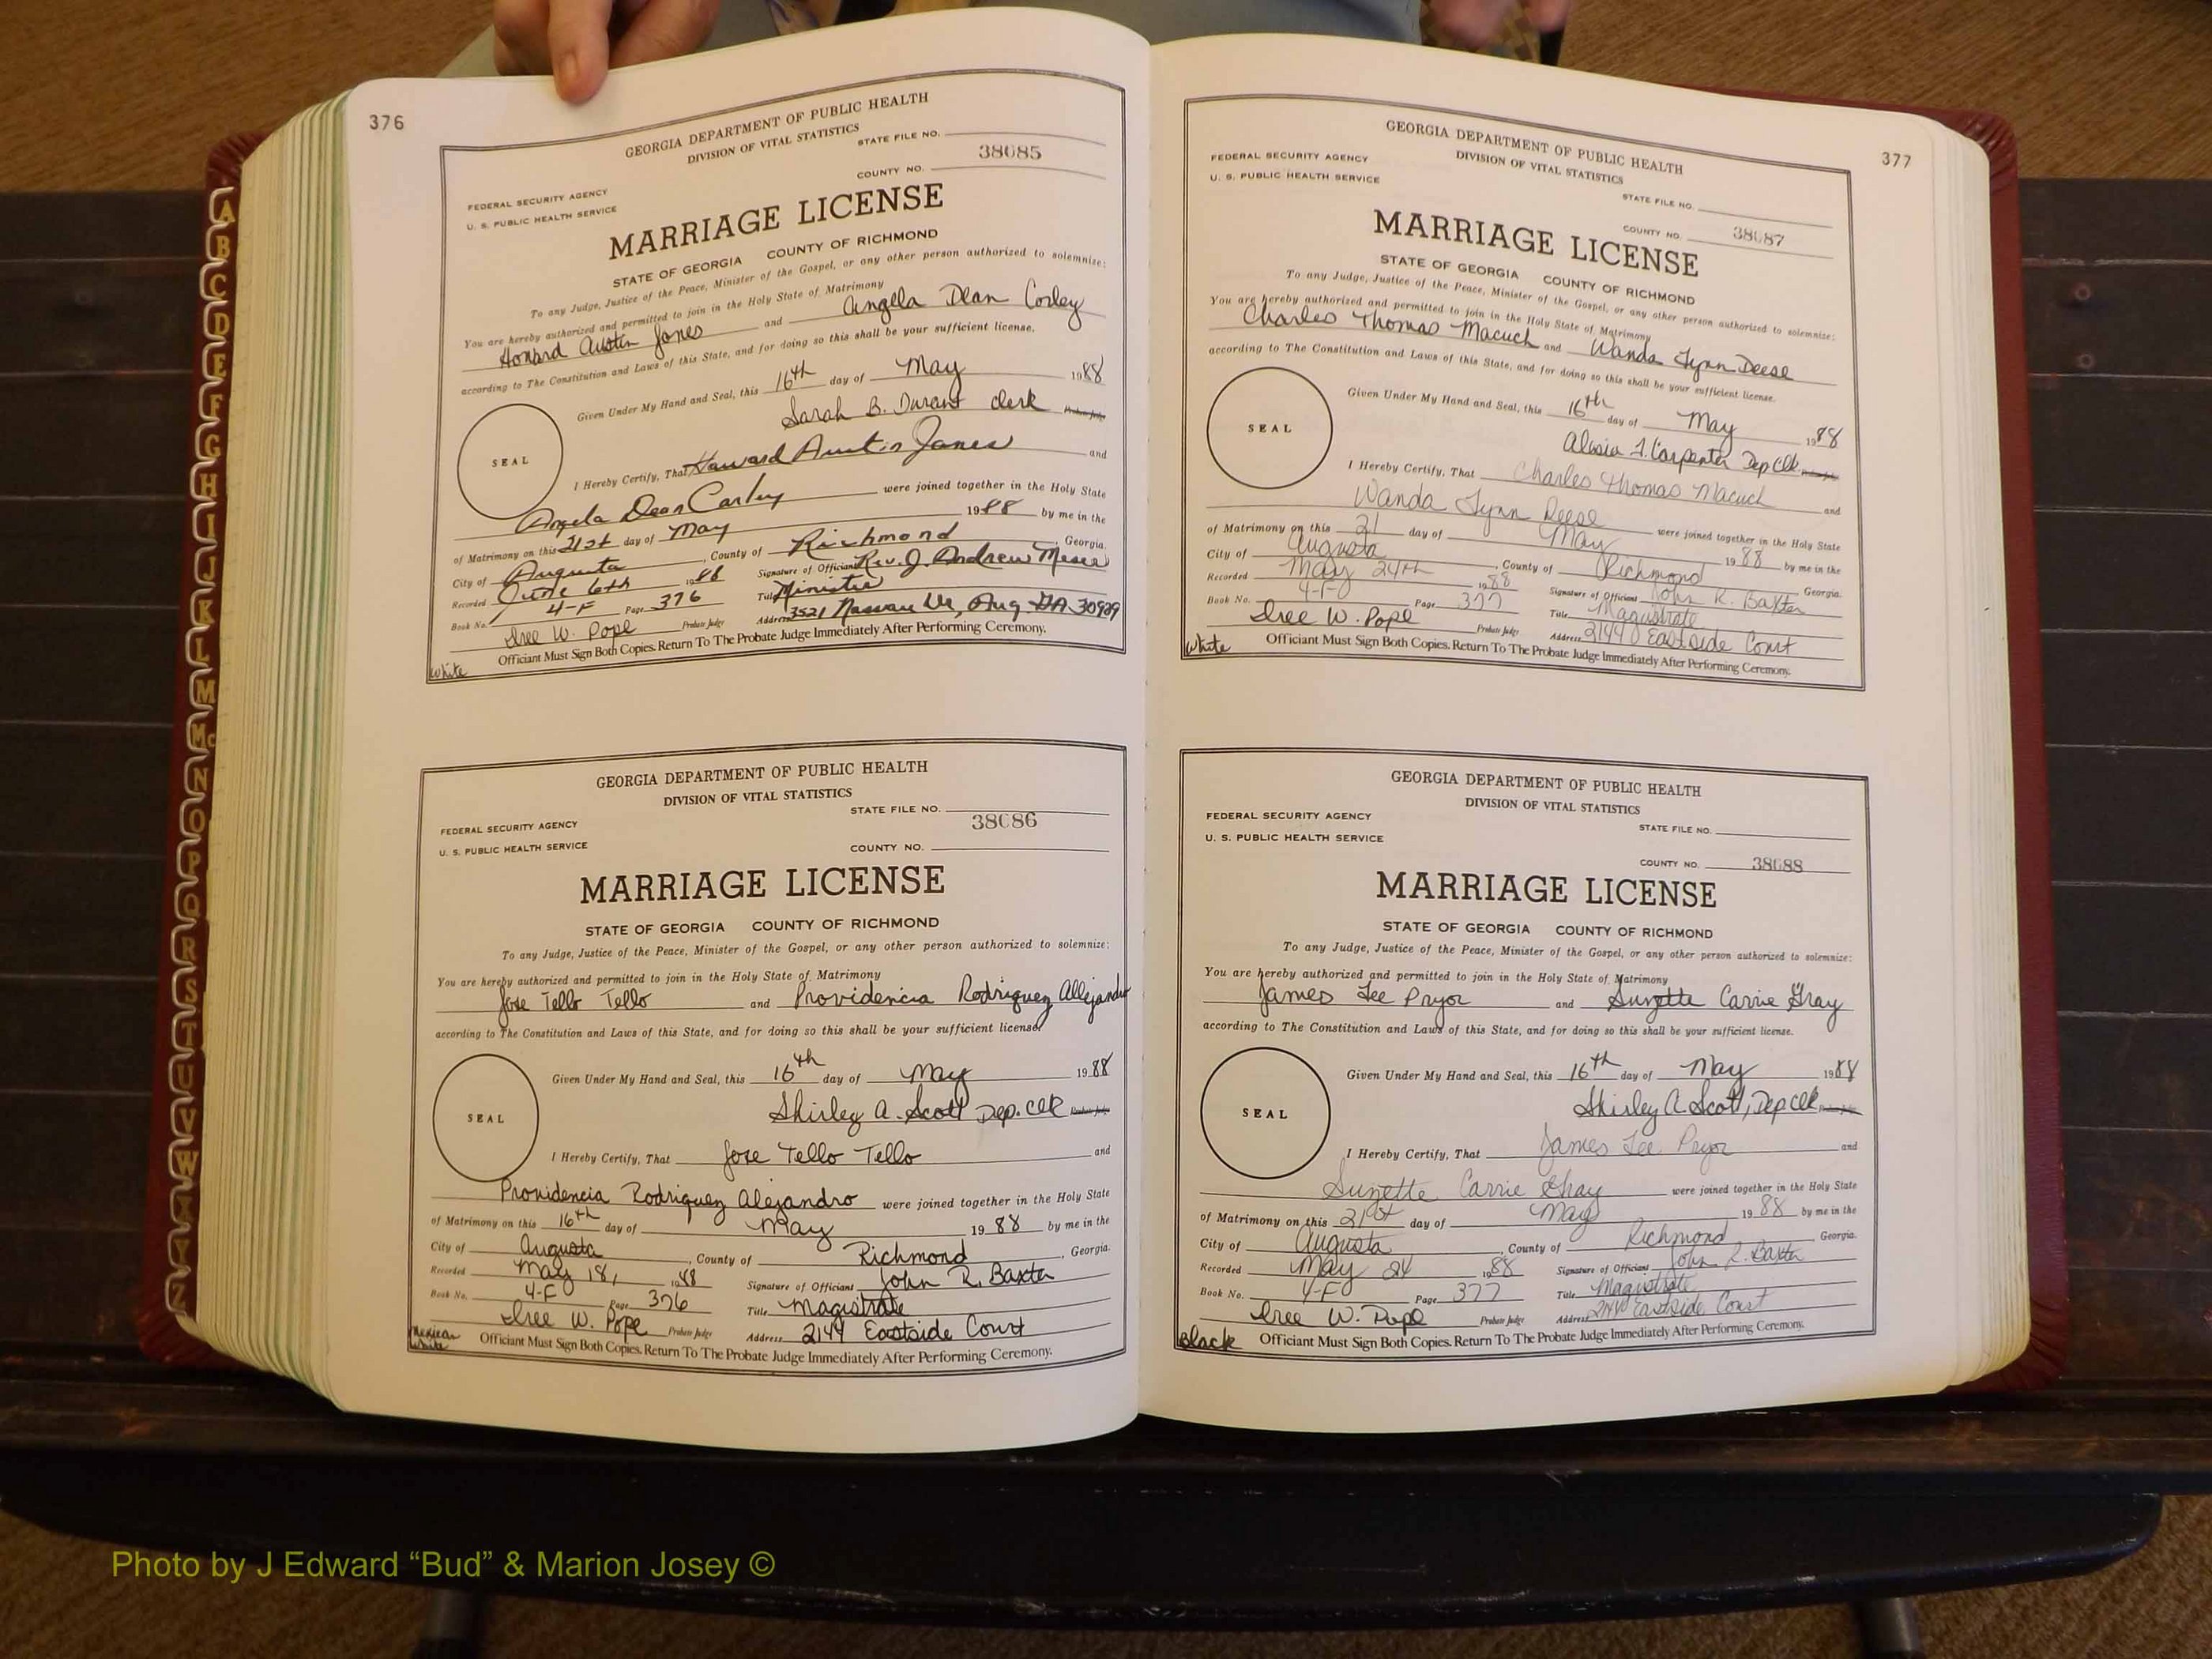 376
GEORGIA DEPARTMENT OF PUBLIC HEALTH
DIVISION OF VITAL STATISTICS
STATE FILE NO.
38685
COUNTY NO.
FEDERAL SECURITY AGENCY
U. S. PUBLIC HEALTH SERVICE
MARRIAGE LICENSE
STATE OF GEORGIA COUNTY OF RICHMOND
To any Judge, Justice of the Peace, Minister of the Gospel, or any other person authorized to solemnize:
You are hereby authorized and permitted to join in the Holy State of Matrimony
Howard Austin Jones and Angela Dean Corley
according to The Constitution and Laws of this State, and for doing so this shall be your sufficient license.
Given Under My Hand and Seal, this 16th day of May 1988
Sarah B. Durant clerk Probate Judge
SEAL
I Hereby Certify, That Howard Austin Jones and
Angela Dean Corley were joined together in the Holy State
of Matrimony on this 21st day of May 1988 by me in the
City of Augusta, County of Richmond, Georgia.
Recorded June 6th 1988 Signature of Officiant Rev. J. Andrew
Book No. 4-F Page 376 Title Minister
Iree W. Pope Probate Judge Address 3521 Nassau Dr, Aug GA 30909
Officiant Must Sign Both Copies. Return To The Probate Judge Immediately After Performing Ceremony.
White
GEORGIA DEPARTMENT OF PUBLIC HEALTH
DIVISION OF VITAL STATISTICS
STATE FILE NO.
38686
FEDERAL SECURITY AGENCY
U. S. PUBLIC HEALTH SERVICE
COUNTY NO.
MARRIAGE LICENSE
STATE OF GEORGIA COUNTY OF RICHMOND
To any Judge, Justice of the Peace, Minister of the Gospel, or any other person authorized to solemnize:
You are hereby authorized and permitted to join in the Holy State of Matrimony
Jose Tello Tello and Providencia Rodriguez Allejandro
according to The Constitution and Laws of this State, and for doing so this shall be your sufficient license.
Given Under My Hand and Seal, this 16th day of May 1988
Shirley A. Scott Dep. Clk Probate Judge
SEAL
I Hereby Certify, That Jose Tello Tello and
Providencia Rodriguez Alejandro were joined together in the Holy State
of Matrimony on this 16th day of May 1988 by me in the
City of Augusta, County of Richmond, Georgia.
Recorded May 18, 1988 Signature of Officiant John R. Baxter
Book No. 4-F Page 376 Title Magistrate
Iree W. Pope Probate Judge Address 2144 Eastside Court
Mexican
White
Officiant Must Sign Both Copies. Return To The Probate Judge Immediately After Performing Ceremony.
377
GEORGIA DEPARTMENT OF PUBLIC HEALTH
DIVISION OF VITAL STATISTICS
FEDERAL SECURITY AGENCY
U. S. PUBLIC HEALTH SERVICE
STATE FILE NO.
COUNTY NO. 38687
MARRIAGE LICENSE
STATE OF GEORGIA COUNTY OF RICHMOND
To any Judge, Justice of the Peace, Minister of the Gospel, or any other person authorized to solemnize:
You are hereby authorized and permitted to join in the Holy State of Matrimony
Charles Thomas Macuch and Wanda Lynn Deese
according to The Constitution and Laws of this State, and for doing so this shall be your sufficient license.
Given Under My Hand and Seal, this 16th day of May 1988
Carpenter Dep Clk
SEAL
I Hereby Certify, That Charles Thomas Macuch and
Wanda Lynn Deese were joined together in the Holy State
of Matrimony on this 21 day of May 1988 by me in the
City of Augusta, County of Richmond, Georgia.
Recorded May 24th 1988 Signature of Officiant John R. Baxter
Book No. 4-F Page 377 Title Magistrate
Iree W. Pope Probate Judge Address 2144 Eastside Court
White
Officiant Must Sign Both Copies. Return To The Probate Judge Immediately After Performing Ceremony.
GEORGIA DEPARTMENT OF PUBLIC HEALTH
DIVISION OF VITAL STATISTICS
FEDERAL SECURITY AGENCY
STATE FILE NO.
U. S. PUBLIC HEALTH SERVICE
COUNTY NO. 38688
MARRIAGE LICENSE
STATE OF GEORGIA COUNTY OF RICHMOND
To any Judge, Justice of the Peace, Minister of the Gospel, or any other person authorized to solemnize:
You are hereby authorized and permitted to join in the Holy State of Matrimony
James Lee Pryor and Suzette Carrie Gray
according to The Constitution and Laws of this State, and for doing so this shall be your sufficient license.
Given Under My Hand and Seal, this 16th day of May 1988
Shirley A. Scott, Dep Clk
SEAL
I Hereby Certify, That James Lee Pryor and
Suzette Carrie Gray were joined together in the Holy State
of Matrimony on this 21st day of May 1988 by me in the
City of Augusta, County of Richmond, Georgia.
Recorded May 24 1988 Signature of Officiant John R. Baxter
Book No. 4-F Page 377 Title Magistrate
Iree W. Pope Probate Judge Address 2144 Eastside Court
Black
Officiant Must Sign Both Copies. Return To The Probate Judge Immediately After Performing Ceremony.
A
B
C
D
E
F
G
H
I
J
K
L
M
Mc
N
O
P
Q
R
S
T
U
V
W
X
Y
Z
Photo by J Edward “Bud” & Marion Josey ©